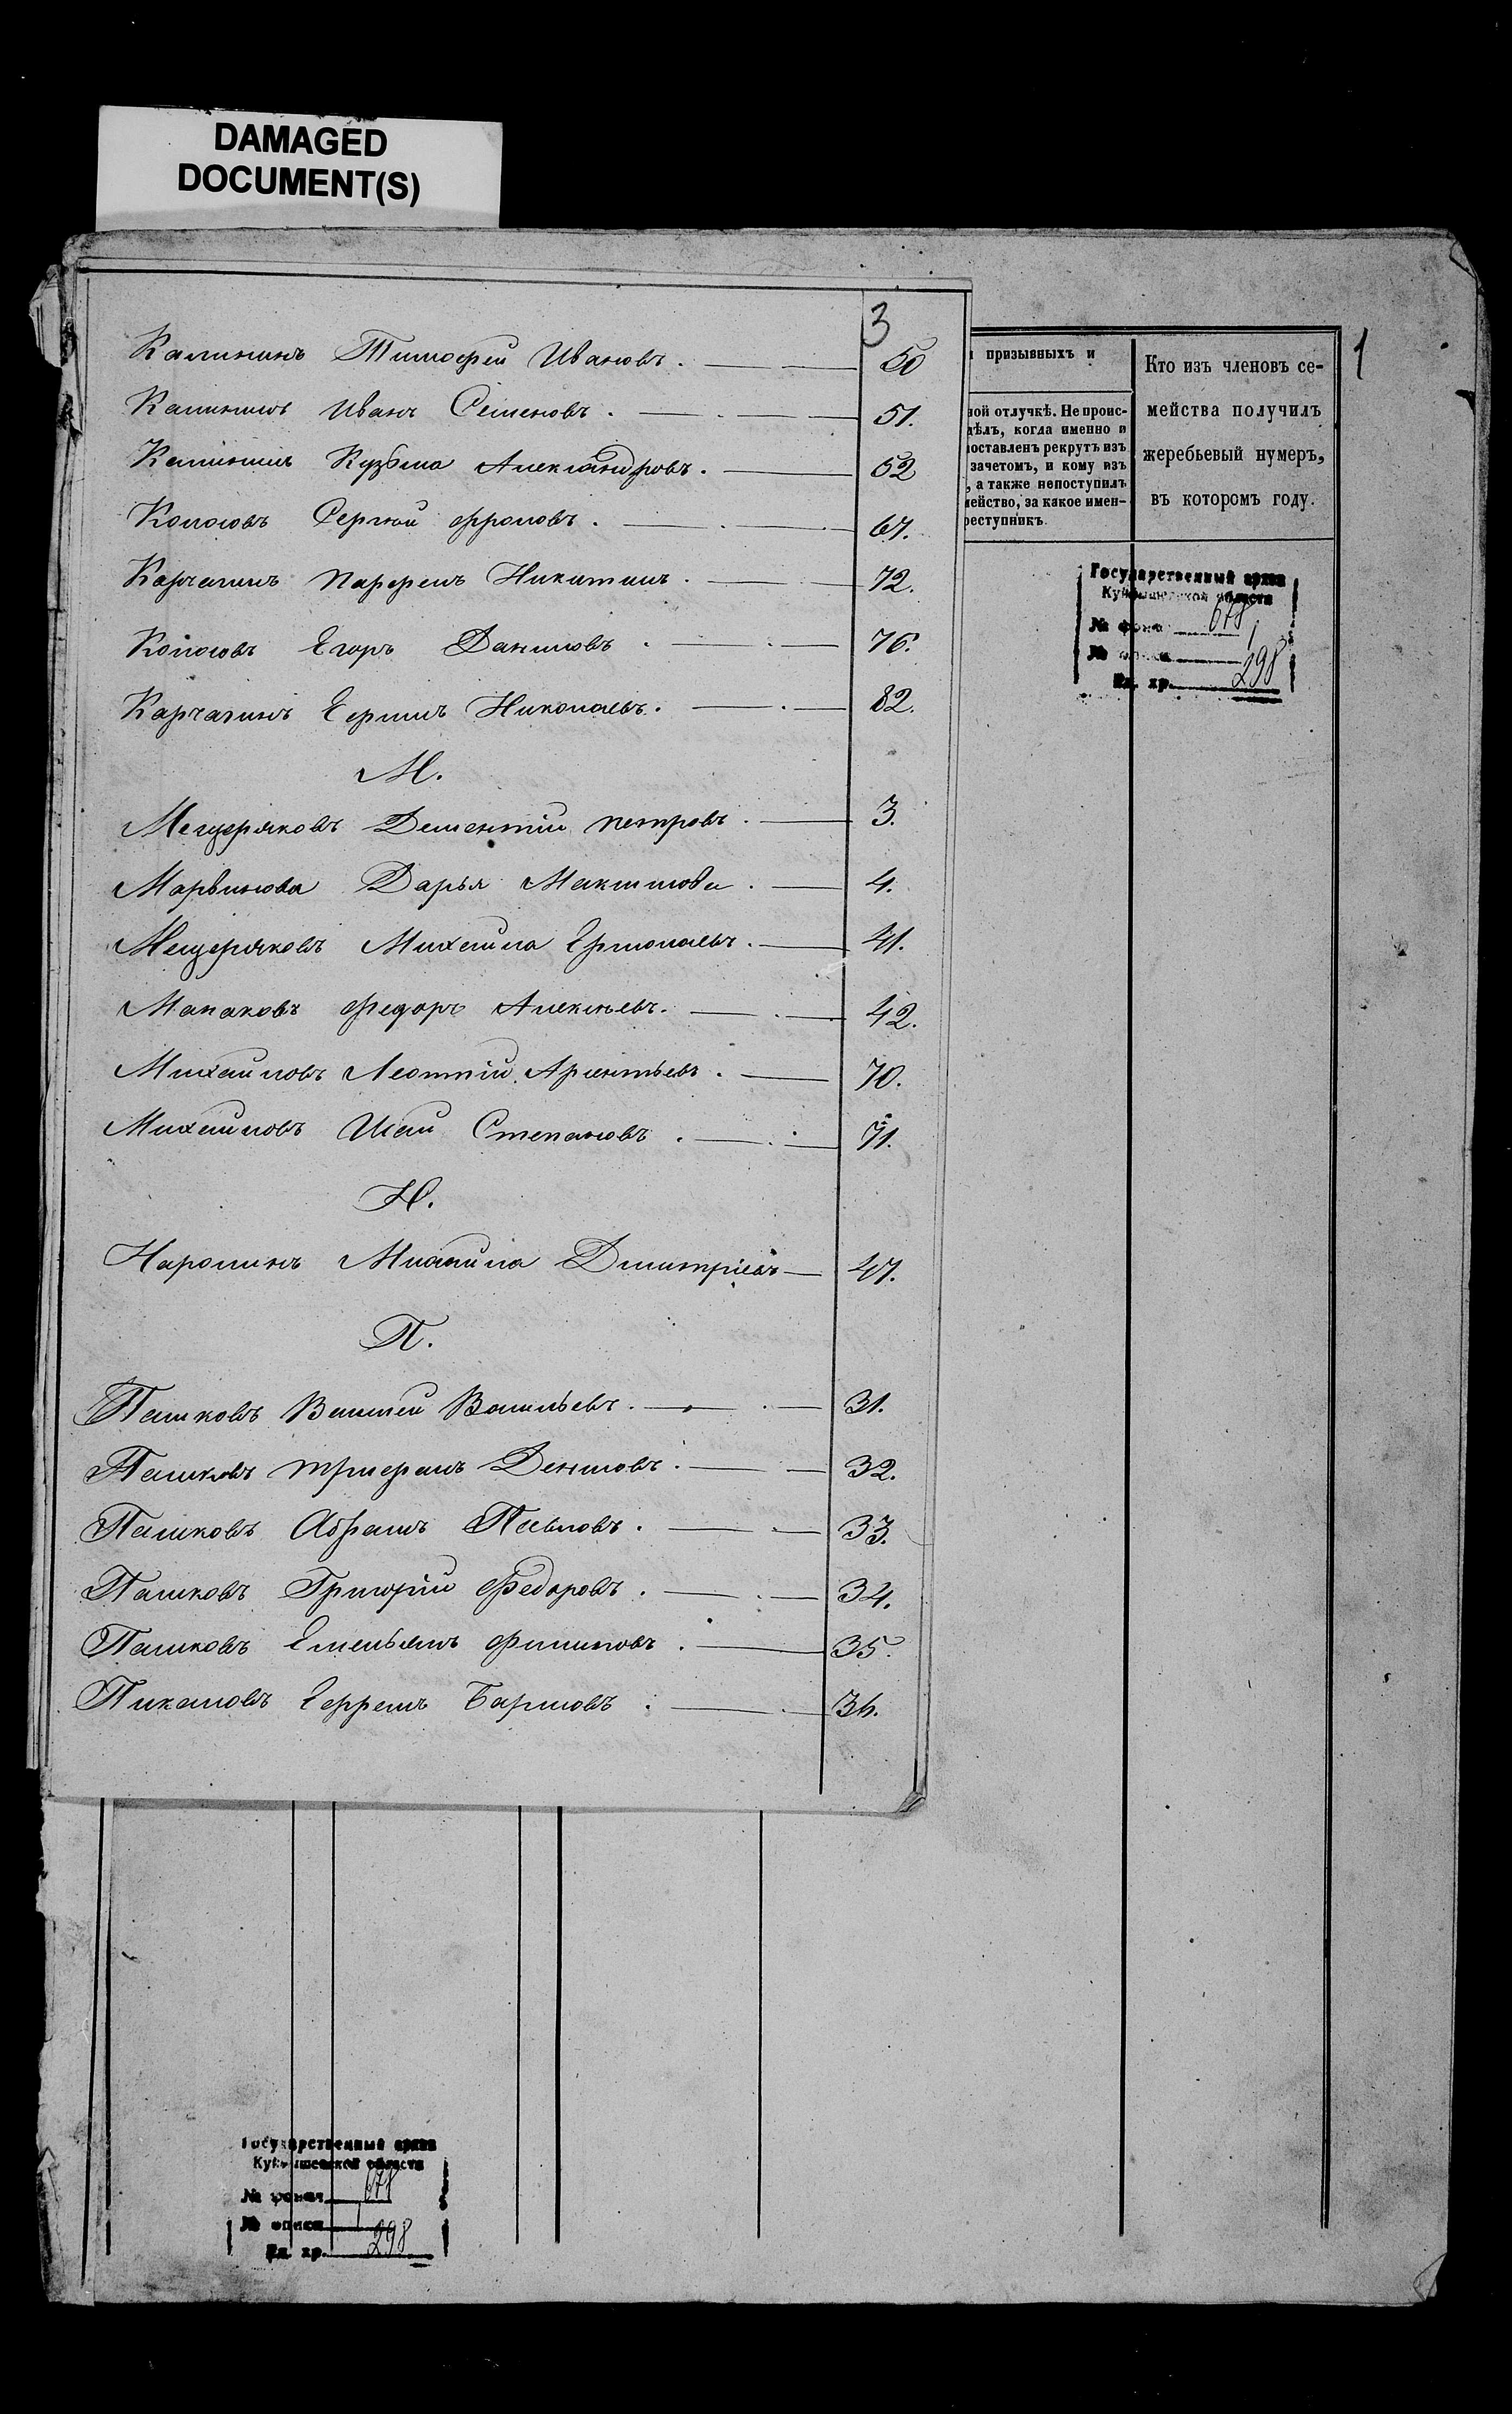 DAMAGED
DOCUMENT(S)
3
Калининъ Тимофей Ивановъ. 50
Калининъ Иванъ Семеновъ. 51.
Калининъ Кузьма Александровъ. 52
Колосовъ Сергей Фроловъ. 67.
Карчагинъ Парфенъ Никитинъ. 72.
Колосовъ Егоръ Даниловъ. 76.
Карчагинъ Ермилъ Николаевъ. 82.
М.
Мещеряковъ Дементій Петровъ. 3.
Дарья Максимова. 4.
Мещеряковъ Михайла Ермолаевъ. 41.
Федоръ Алексѣевъ. 42.
Михайловъ Леонтій 70.
Михайловъ Исай Степановъ. 71.
Н.
Михайла Дмитріевъ 47.
П.
Пашковъ Василій Васильевъ. 31.
Пашковъ Трифанъ Денисовъ. 32.
Пашковъ Абрамъ Павловъ. 33.
Пашковъ Григорій Федоровъ. 34.
Пашковъ Емельянъ Филиповъ. 35.
Ефремъ 36.
призывныхъ и
ной отлучкѣ. Не проис-
дѣлъ, когда именно и
поставленъ рекрутъ изъ
зачетомъ, и кому изъ
, а также непоступилъ
мейство, за какое имен-
реступникъ.
Кто изъ членовъ се-
мейства получилъ
жеребьевый нумеръ,
въ которомъ году.
1
Государственный архив
Куйбышевской области
№ фонда 678
№ описи 1
Ед. хр. 298
Государственный архив
Куйбышевской области
№ фонда 678
№ описи 1
Ед. хр. 298